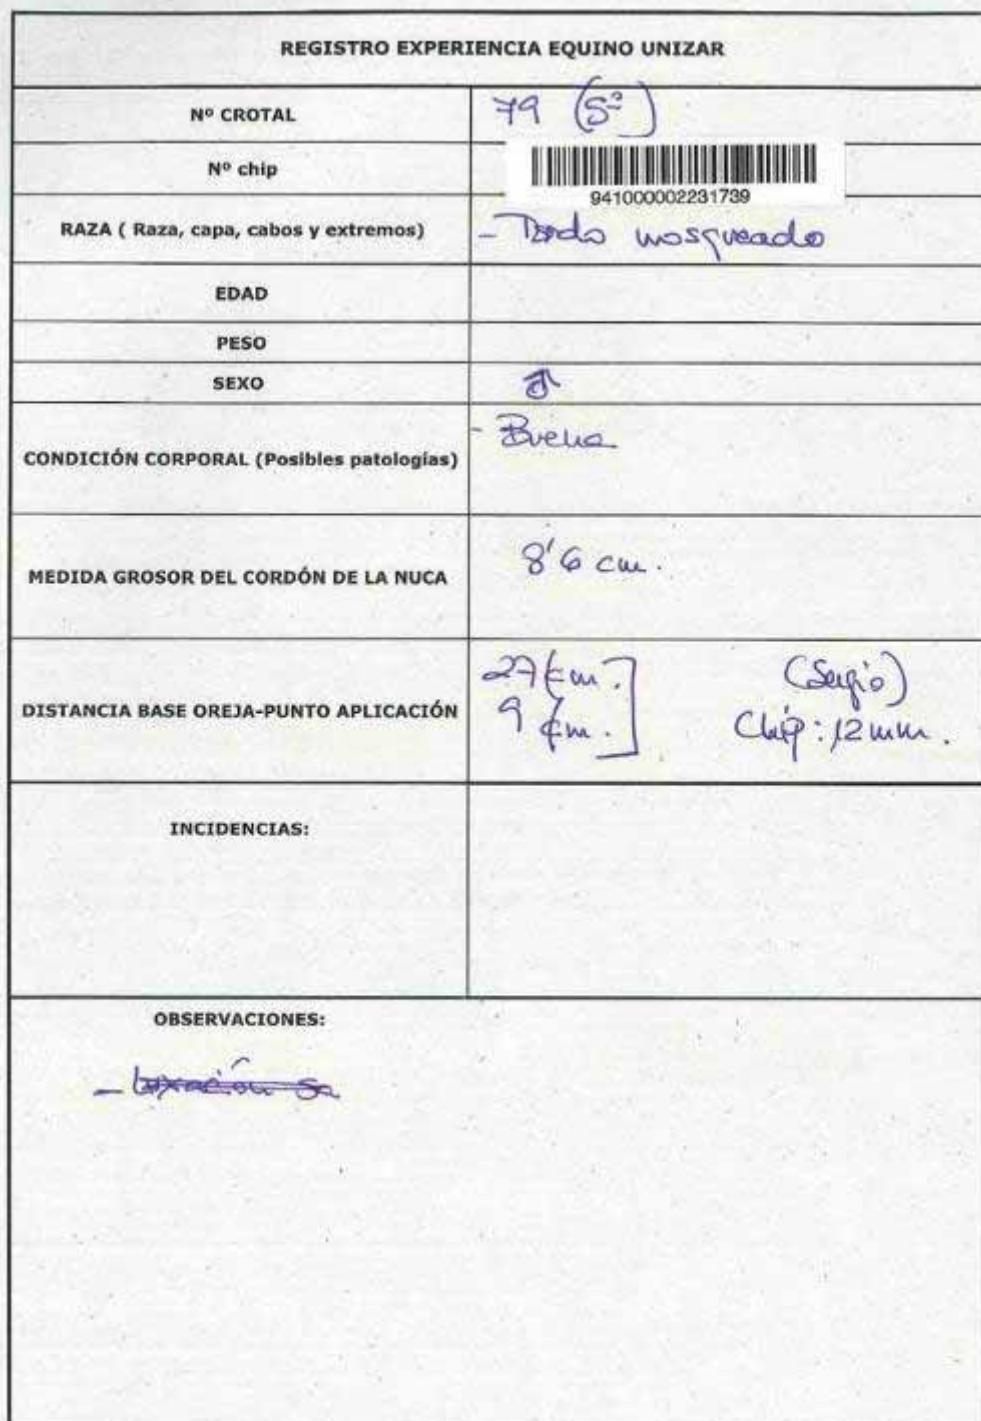 REGISTRO EXPERIENCIA EQUINO UNIZAR
Nº CROTAL 79 (5º)
Nº chip 941000002231739
RAZA ( Raza, capa, cabos y extremos) - Tordo mosqueado
EDAD
PESO
SEXO ♂
CONDICIÓN CORPORAL (Posibles patologías) - Buena
MEDIDA GROSOR DEL CORDÓN DE LA NUCA 8'6 cm.
DISTANCIA BASE OREJA-PUNTO APLICACIÓN
27 cm. (Sergio)
9 cm. Chip: 12 mm.
INCIDENCIAS:
OBSERVACIONES: